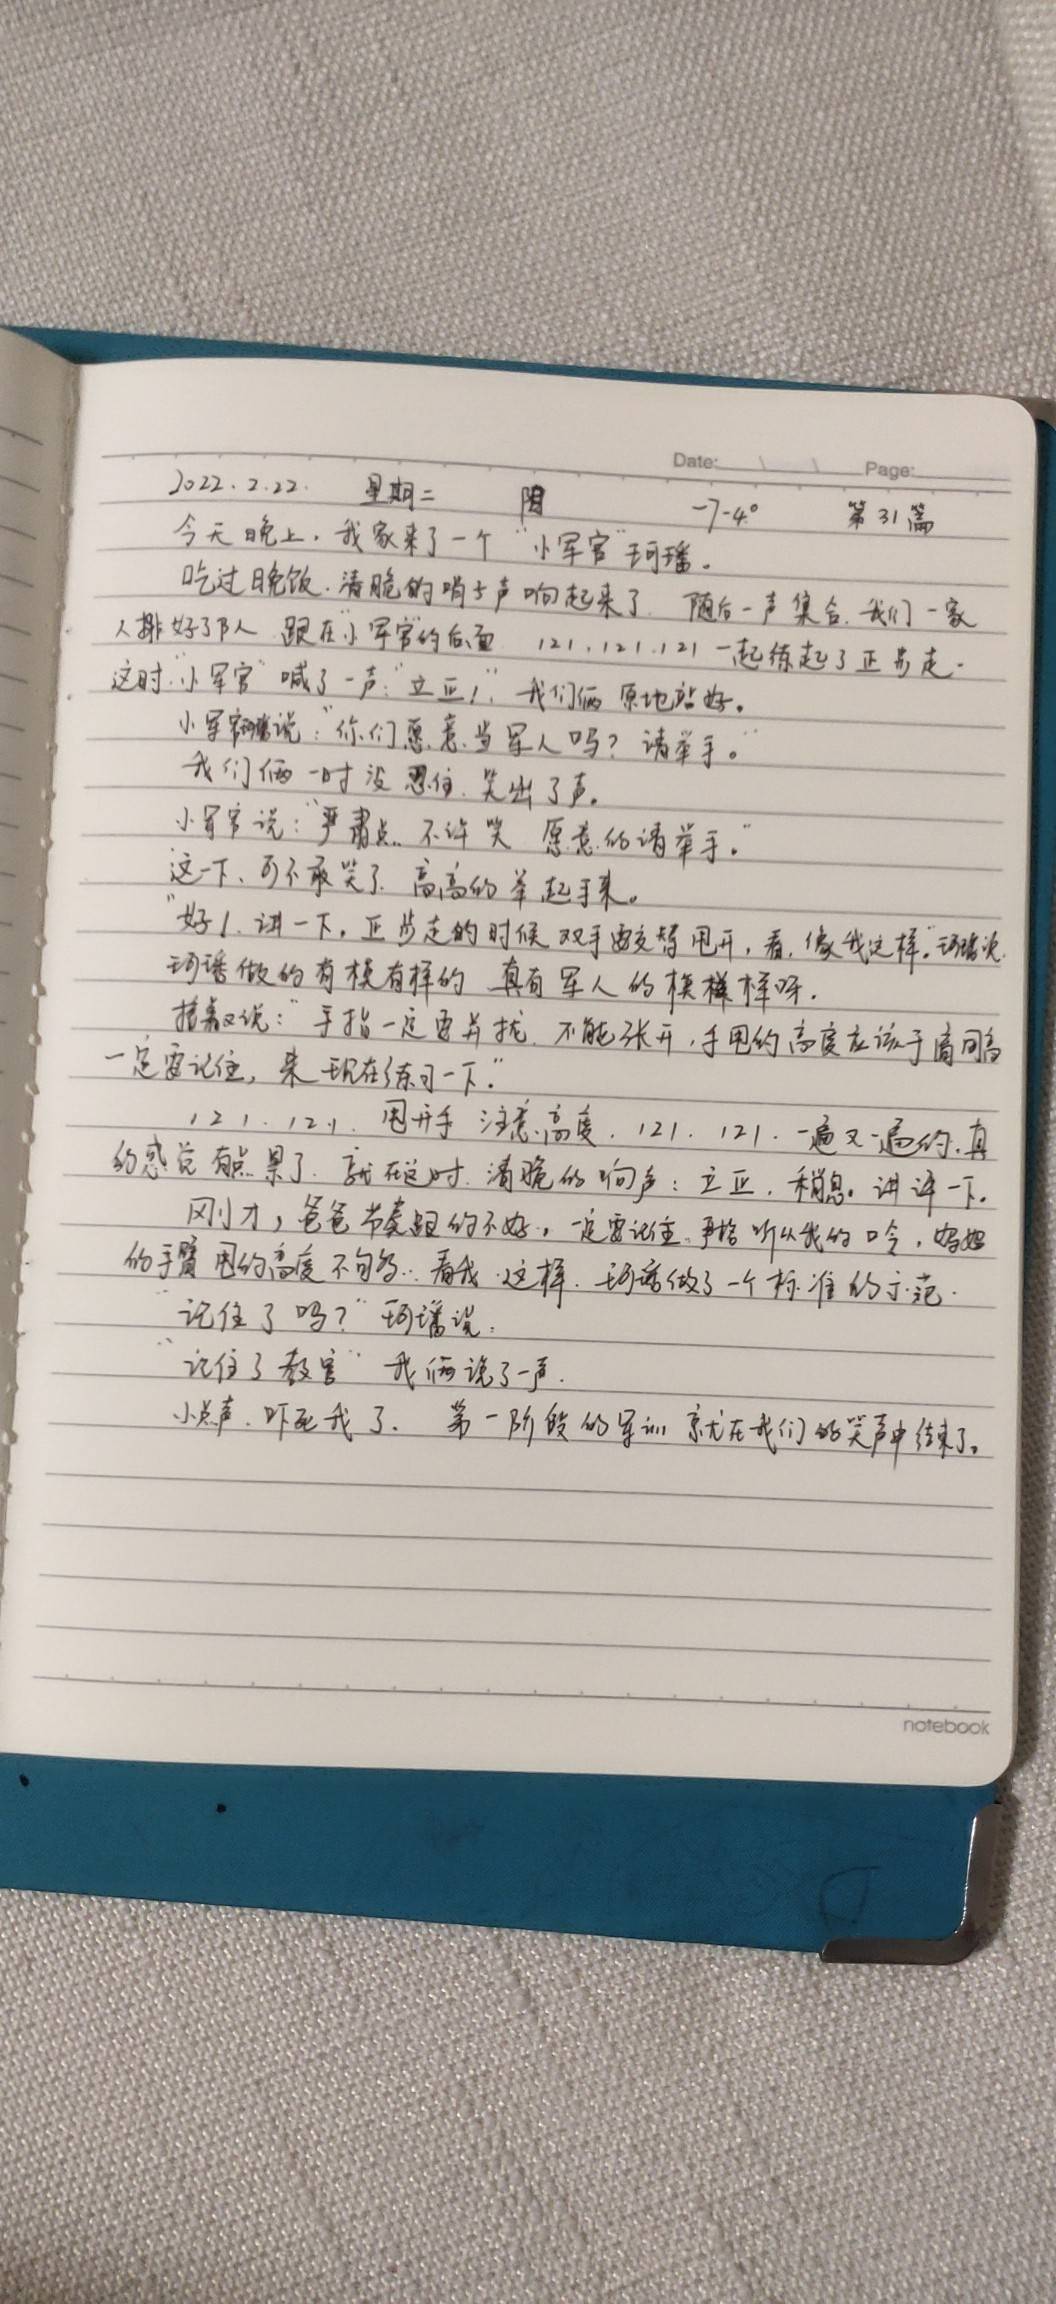 Date: Page:
2022.2.22. 星期二 阴 -7-4° 第31篇
今天晚上,我家来了一个“小军官”珂璠。
吃过晚饭.清脆的哨子声响起来了 随后一声集合.我们一家
人排好了队 跟在“小军官”的后面 121.121.121一起练起了正步走.
这时“小军官”喊了一声:“立正!”,我们俩原地站好。
小军官珂璠说:“你们愿意当军人吗?请举手。”
我们俩一时没忍住.笑出了声。
小军官说:“严肃点.不许笑 愿意的请举手。”
这一下、可不敢笑了 高高的举起手来。
“好!讲一下。正步走的时候双手要交替甩开,看.像我这样。”珂璠说
珂璠做的有模有样的 真有军人的模样样呀.
接着又说:“手指一定要并拢.不能张开,手甩的高度应该于肩同高
一定要记住,来现在练习一下。”
121.121.甩开手 注意高度.121.121.一遍又一遍的.真
的感觉有点累了.就在这时.清脆的响声:立正.稍息。讲评一下.
刚才,爸爸节奏跟的不好,一定要记住 听从我的口令,妈妈
的手臂甩的高度不够.看我.这样.珂璠做了一个标准的示范.
“记住了吗?”珂璠说:
“记住了教官”我俩说了一声.
小点声.吓死我了. 第一阶段的军训就在我们的笑声中结束了。
notebook